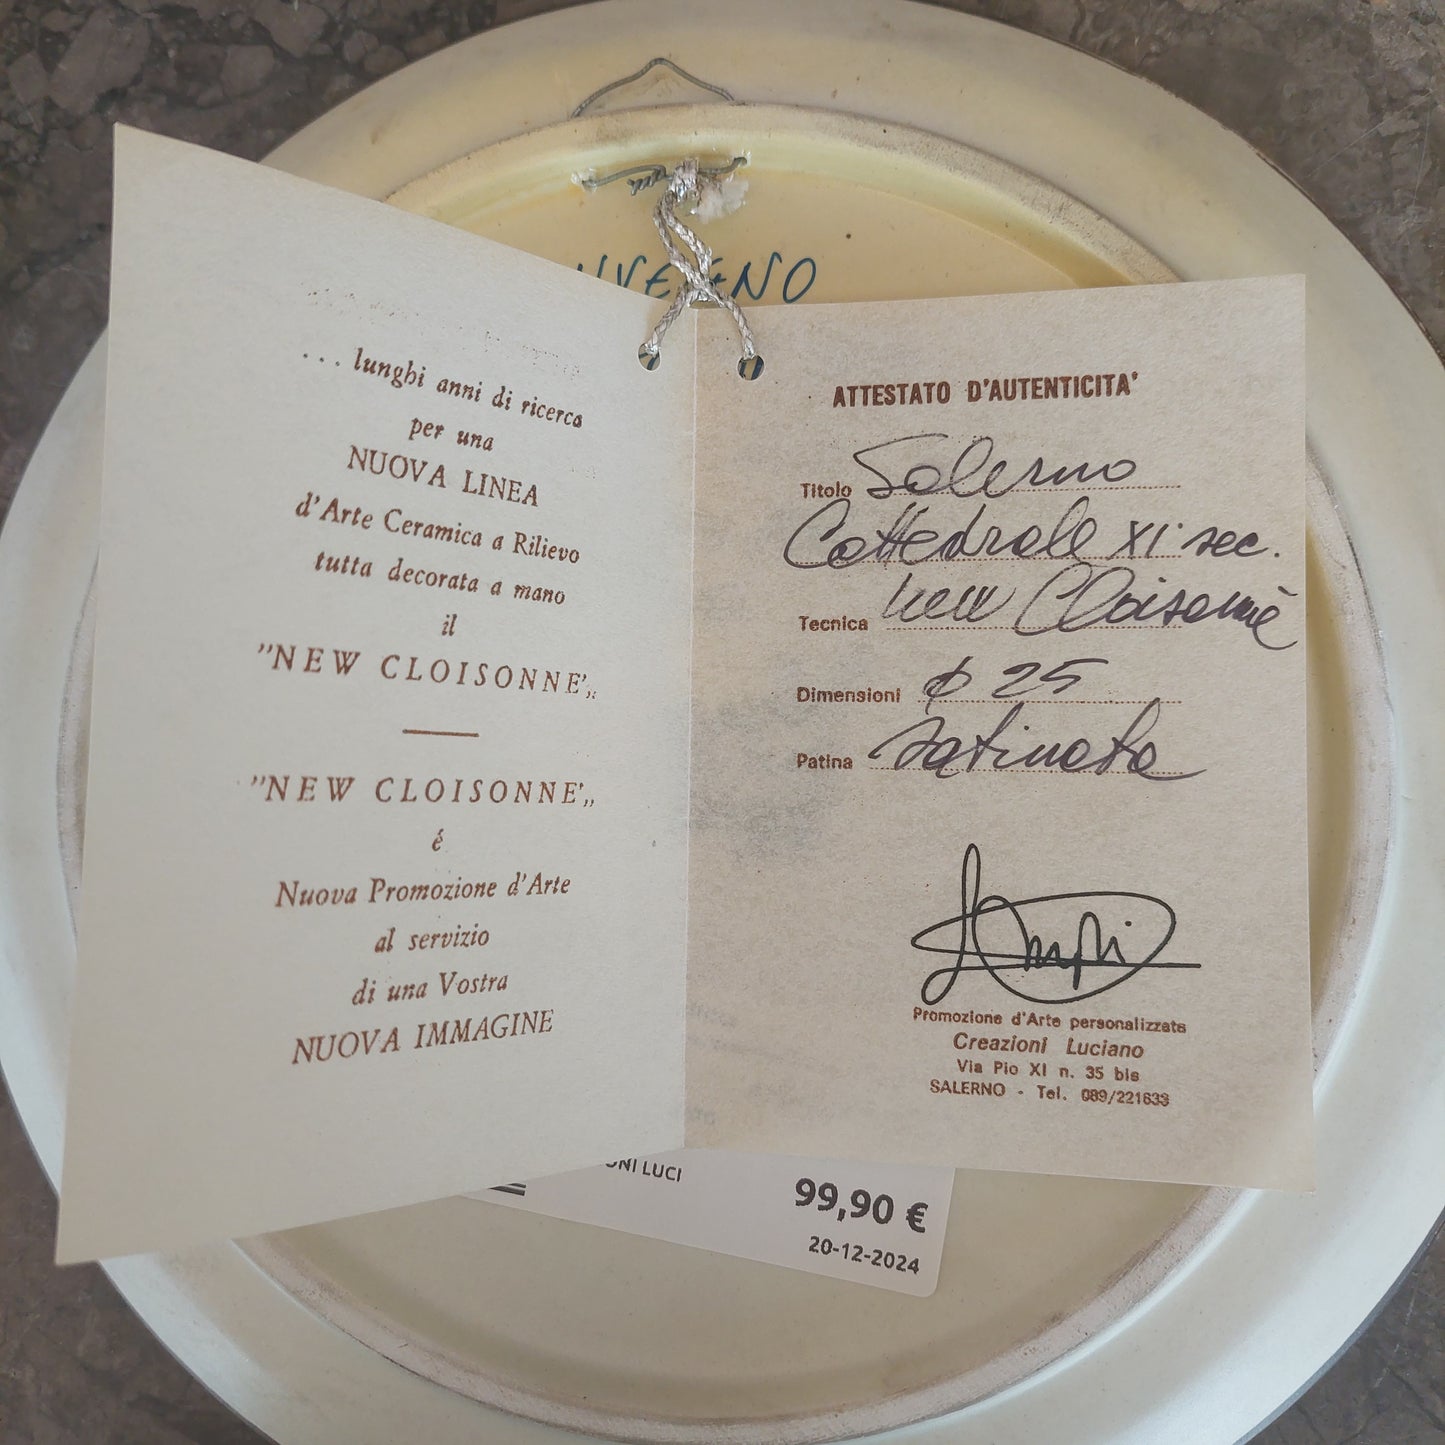 . . . lunghi anni di ricerca
per una
NUOVA LINEA
d'Arte Ceramica a Rilievo
tutta decorata a mano
il
"NEW CLOISONNE'„
"NEW CLOISONNE'„
é
Nuova Promozione d'Arte
al servizio
di una Vostra
NUOVA IMMAGINE
ATTESTATO D'AUTENTICITA'
Titolo Salerno
Cattedrale XI sec.
Tecnica New Cloisonnè
Dimensioni ϕ 25
Patina satinata
Promozione d'Arte personalizzata
Creazioni Luciano
Via Pio XI n. 35 bis
SALERNO - Tel. 089/221633
LUCI
99,90 €
20-12-2024